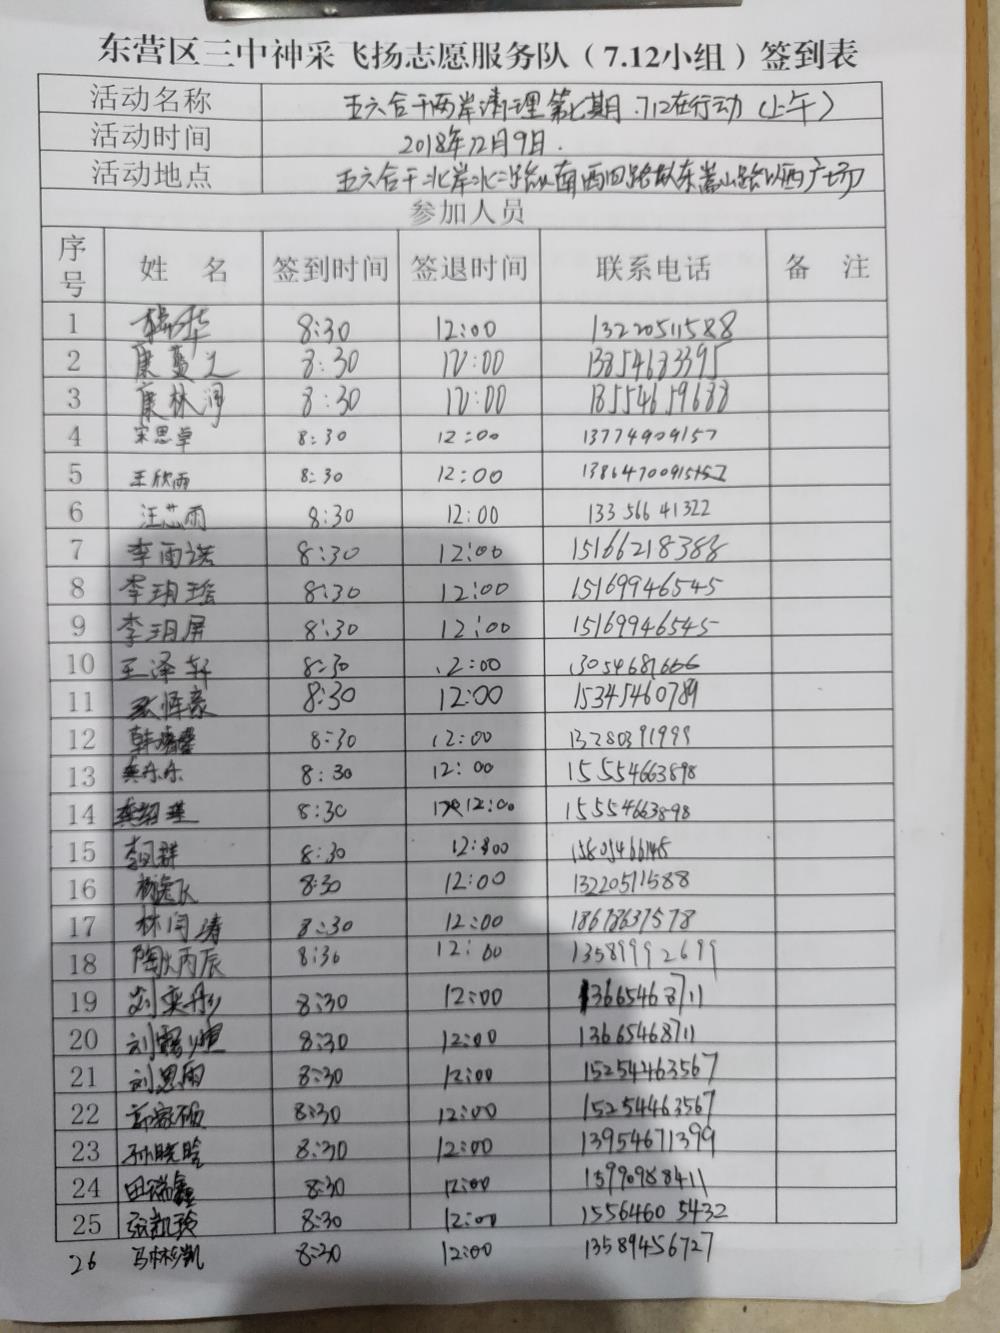 东营区三中神采飞扬志愿服务队（7.12小组）签到表
活动名称 五六合干两岸清理第七期.712在行动（上午）
活动时间 2018年12月9日.
活动地点 五六合干北岸北二路以南西四路以东嵩山路以西广场
参加人员
序号 姓 名 签到时间 签退时间 联系电话 备 注
1 杨华 8:30 12:00 13220511588
2 康 8:30 12:00 13854683395
3 康林润 8:30 12:00 18554659688
4 宋思卓 8:30 12:00 13774909157
5 王欣雨 8:30 12:00
6 汪芯雨 8:30 12:00 13356641322
7 李雨诺 8:30 12:00 15166218388
8 李玥瑶 8:30 12:00 15169946545
9 李玥屏 8:30 12:00 15169946545
10 王泽轩 8:30 12:00 13054681666
11 8:30 12:00 15345460789
12 韩 8:30 12:00 13280391999
13 龚乐乐 8:30 12:00 15554663898
14 龚绍瑾 8:30 12:00 15554663898
15 李凤群 8:30 12:00 15805466145
16 杨逸飞 8:30 12:00 13220511588
17 林闫涛 8:30 12:00 18678637578
18 陶火丙辰 8:30 12:00 13589992699
19 刘奕彤 8:30 12:00 13665468711
20 刘露煊 8:30 12:00 13665468711
21 刘思雨 8:30 12:00 15254463567
22 郭家硕 8:30 12:00 15254463567
23 孙晓晗 8:30 12:00 13954671399
24 田瑞鑫 8:30 12:00 15990988411
25 张凯玲 8:30 12:00 15564605432
26 马林彬凯 8:30 12:00 13589456727